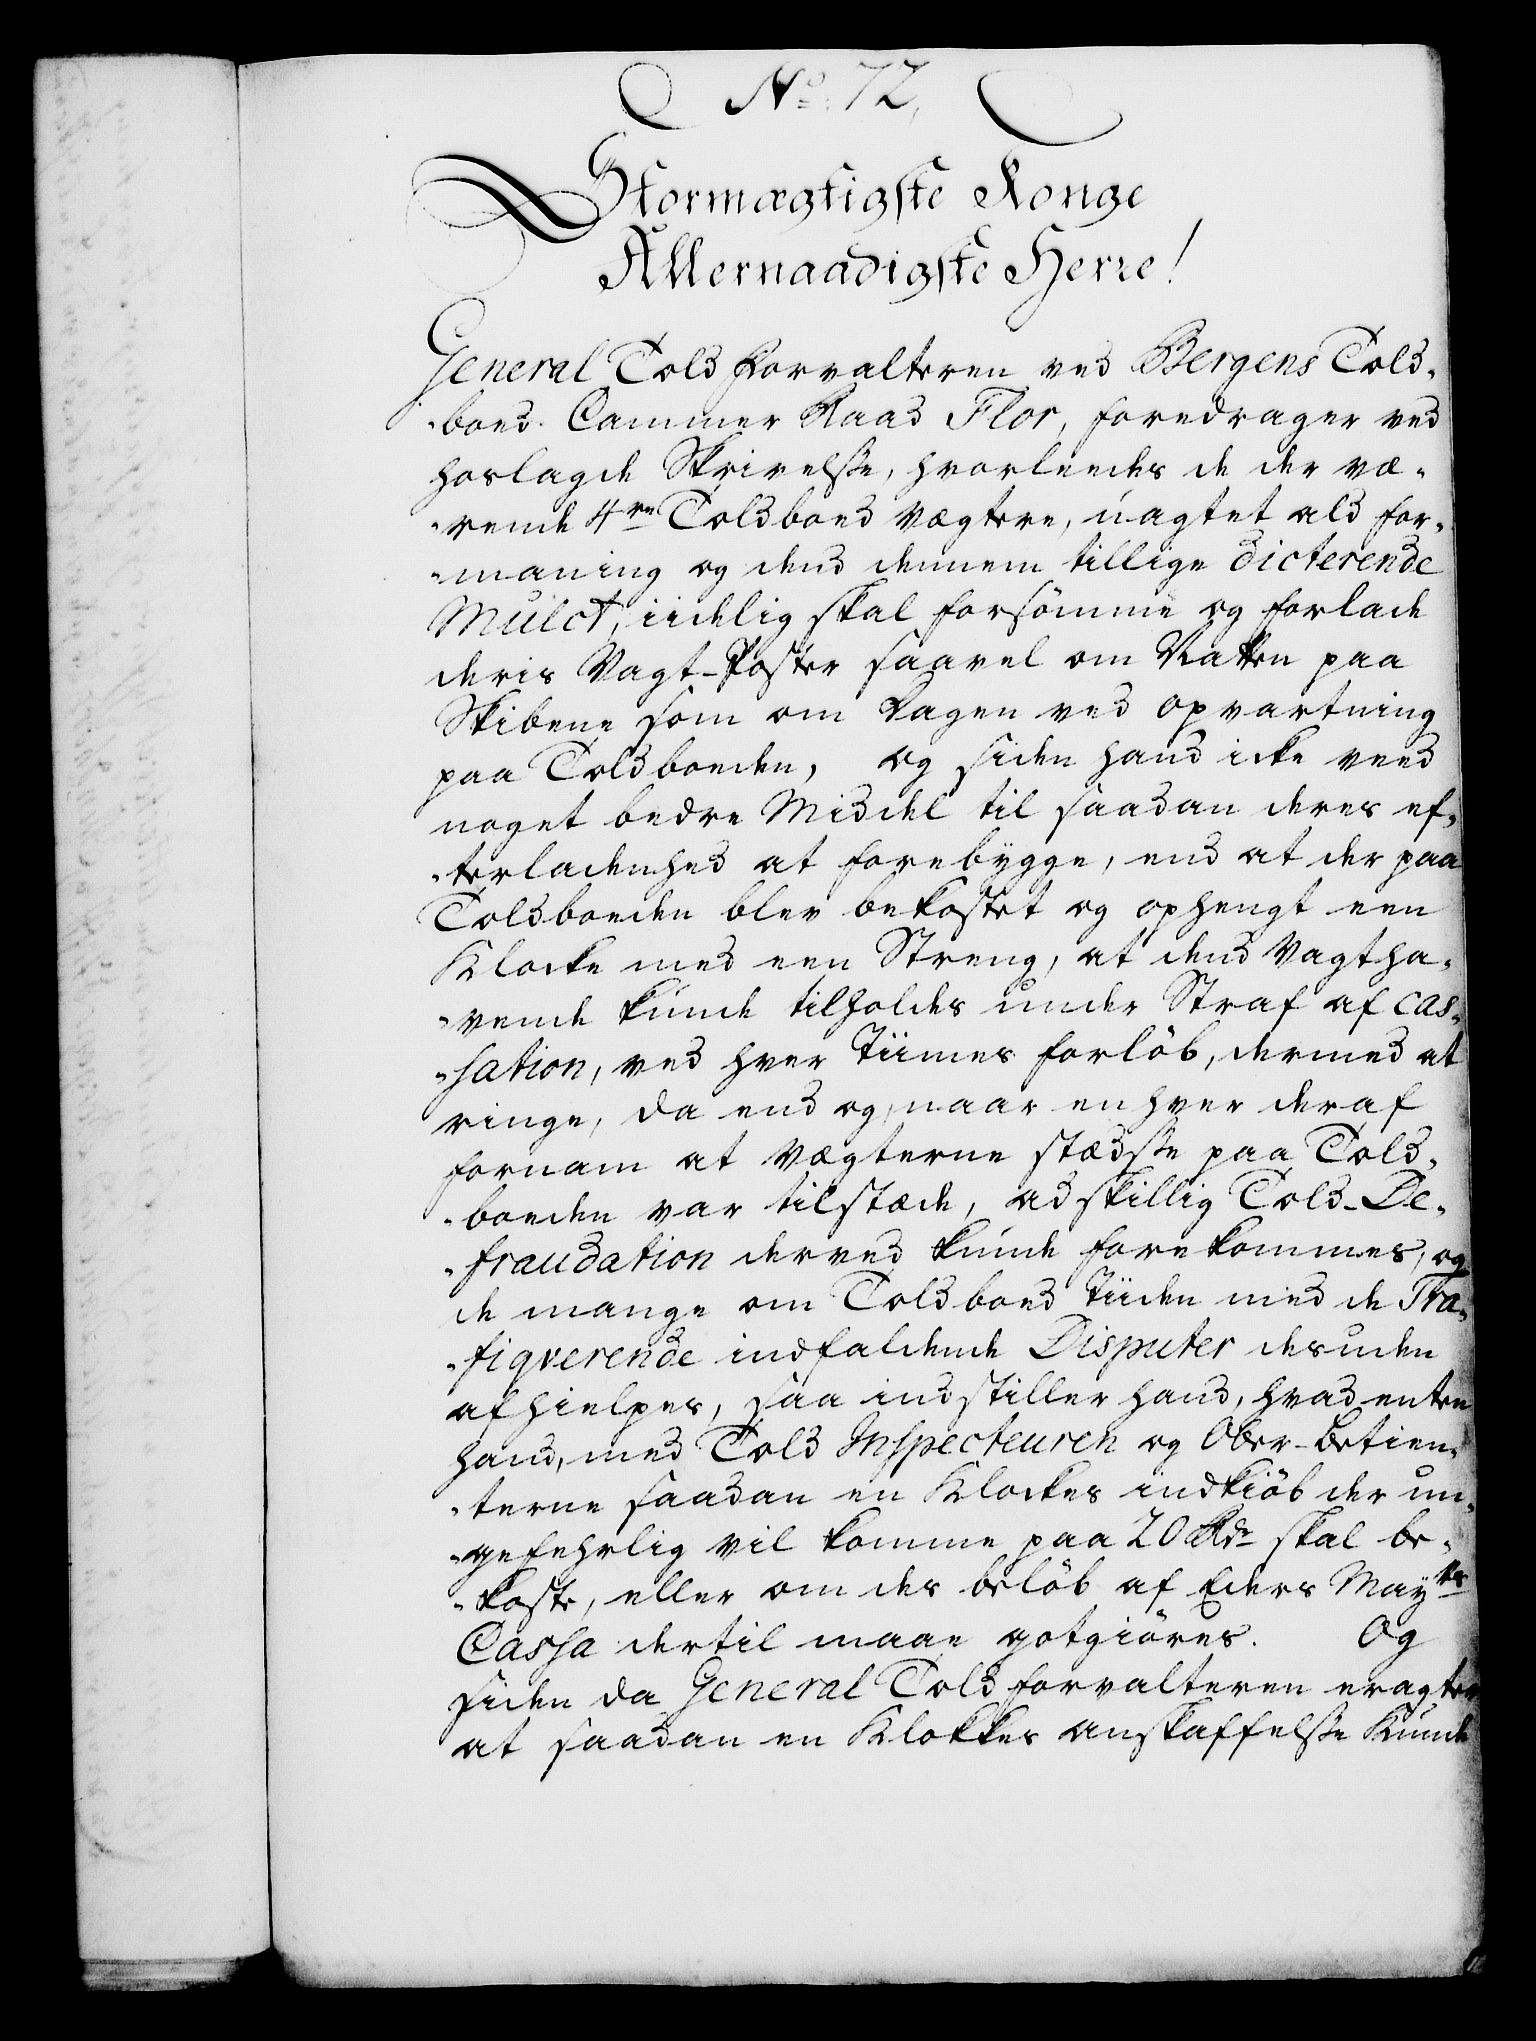 No. 72,
Stormægtigste Konge
Allernaadigste Herre!
General Told Forvalteren ved Bergens Told-
-boed Cammer Raad Flor, foredrager ved
hoslagde Skrivelsse, hvorleedes de der væ-
-rende 4re Toldboed Vægtere, uagtet ald for-
-maning og dend dennem tillige dicterende
Mulct, iidelig skal forsömme og forlade
deris Vagt-Poster saavel om Natten paa
Skibene som om Dagen ved opvartning
paa Toldboeden, og siden hand icke veed
noget bedre Middel til saadan deres ef-
-terladenhed at forebygge, end at der paa
Toldboeden blev bekostet og ophengt een
Klocke med een Streng, at dend Vagtha-
-vende kunde tilholdes under Straf af Cas-
-sation, ved hver Tiimes forlöb, dermed at
ringe, da end og, naar enhver deraf
fornam at Vægterne stædsse paa Told-
-boeden var tilstæde, adskillig Told-De-
-fraudation derved kunde forekommes, og
de mange om Toldboed Tiiden med de Tra-
-fiqverende indfaldende Disputer desuden
afhielpes, saa indstiller hand, hvad enten
hand, med Told Inspecteuren og Ober-betien-
-terne saadan en Klockes indkiöb der un-
-gefehrlig vil komme paa 20 Rdr skal be-
-koste, eller om des belöb af Eders Mayts
Cassa dertil maae gotgiöres. Og
siden da General Toldforvalteren eragter
at saadan en Klokkes anskaffelsse kunde